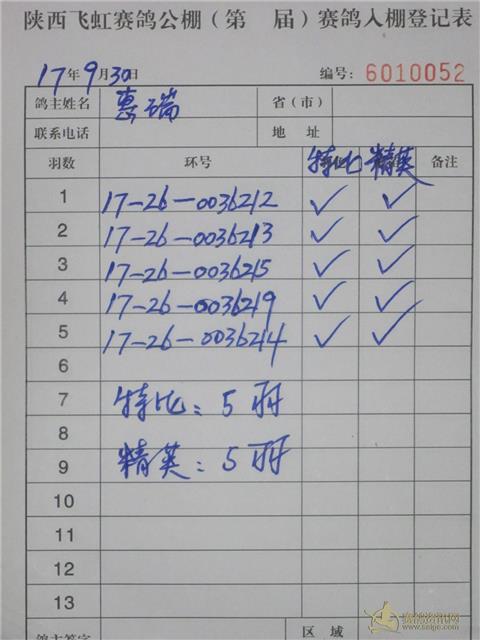 陕西飞虹赛鸽公棚（第 届）赛鸽入棚登记表
17年9月30日 编号：6010052
鸽主姓名 惠瑞 省（市）
联系电话 地 址
羽数 环号 特比 精英 备注
1 17-26-0036212 ✓ ✓
2 17-26-0036213 ✓ ✓
3 17-26-0036215 ✓ ✓
4 17-26-0036219 ✓ ✓
5 17-26-0036214 ✓ ✓
6
7 特比：5羽
8
9 精英：5羽
10
11
12
13
鸽主签字 区 域
赛鸽资讯网
www.saige.com